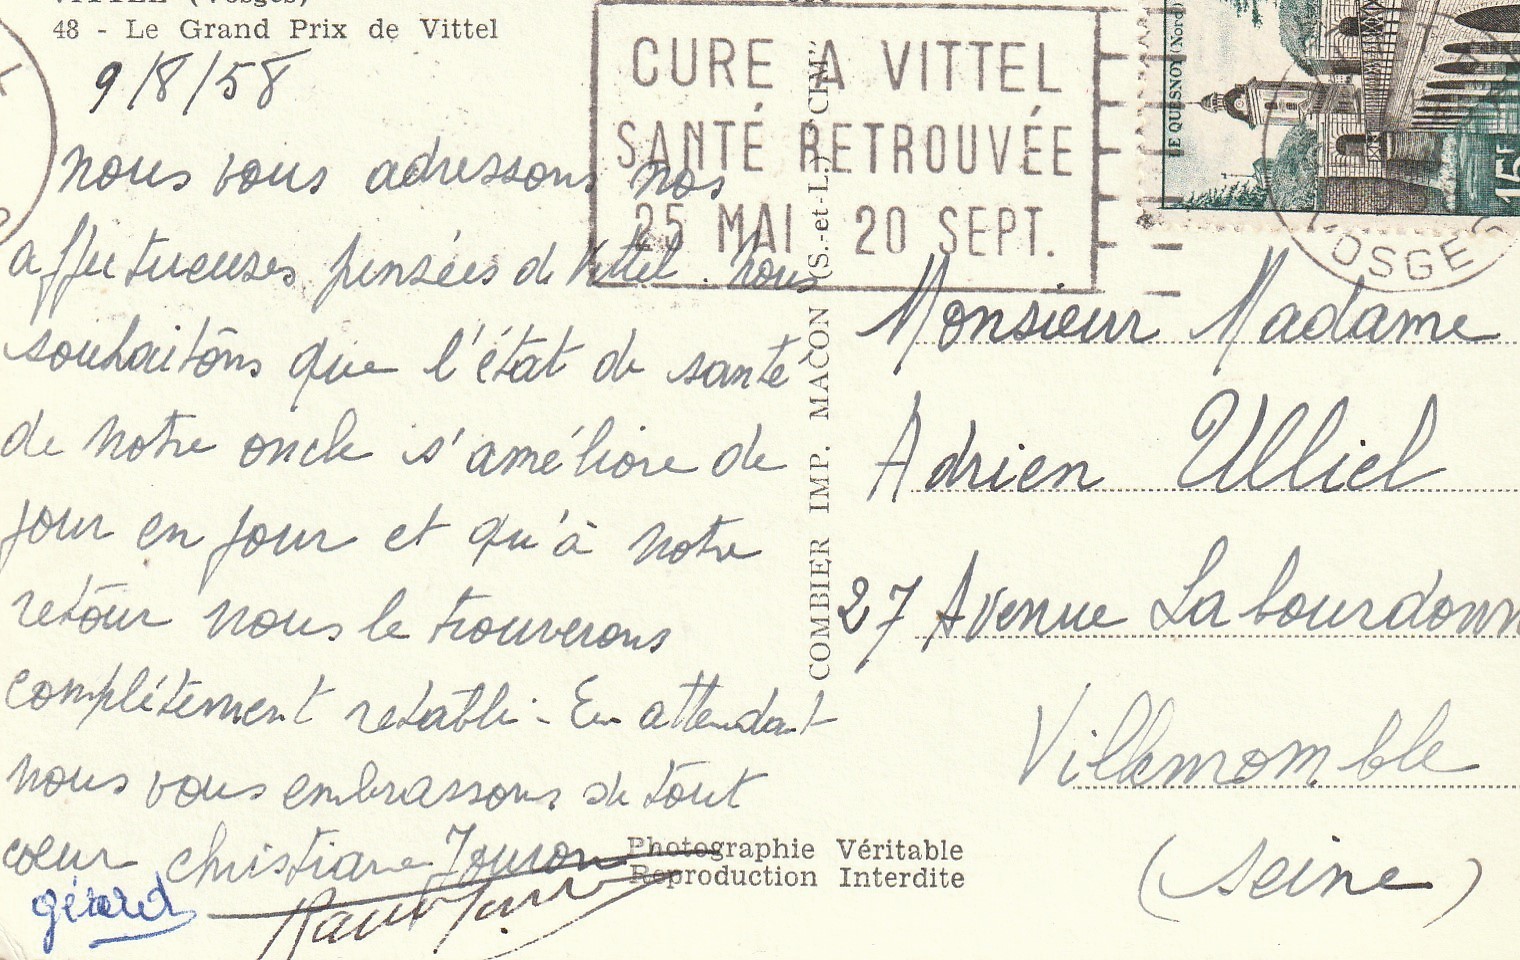 VITTEL (Vosges)
48 - Le Grand Prix de Vittel
9/8/58
nous vous adressons nos
affectueuses pensées de Vittel. nous
souhaitons que l'état de santé
de notre oncle s'améliore de
jour en jour et qu'à notre
retour nous le trouverons
complétement retabli - En attendant
nous vous embrassons de tout
coeur christiane
gérard
CURE A VITTEL
SANTÉ RETROUVÉE
25 MAI 20 SEPT.
LE QUESNOY (Nord)
15F
VOSGES
COMBIER IMP. MACON (S.-et-L.) "CIM"
Monsieur Madame
Adrien Ulliel
27 Avenue La bourdonn
Villemomble
(Seine)
Photographie Véritable
Reproduction Interdite